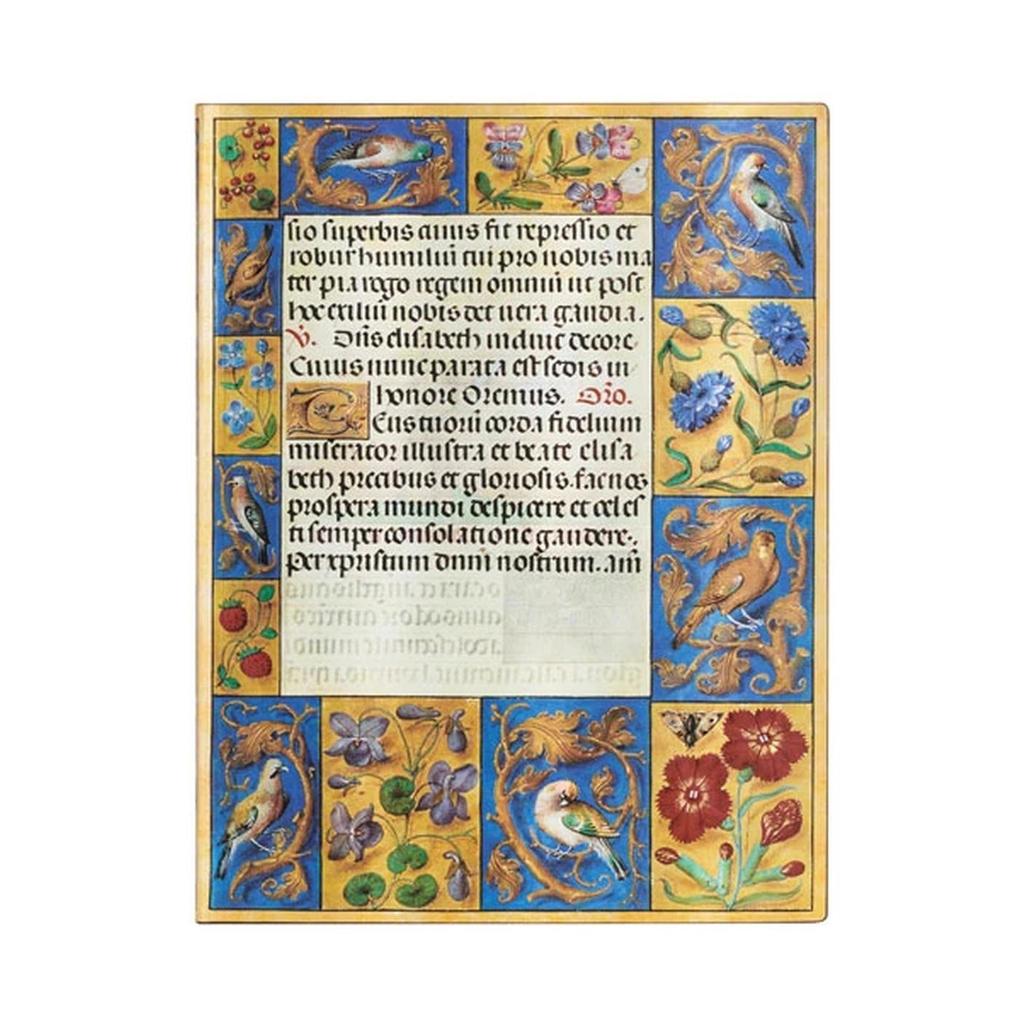 sio superbis cuius fit repressio et
robur humiliũ tui pro nobis ma
ter pia rogo regem omniũ ut post
hoc exiliũ nobis det uera gaudia.
V. Dñs elisabeth induit decore
Cuius nunc parata est sedis in
honore Oremus. Oro.
Deus tuorũ corda fidelium
miserator illustra et beate elisa
beth precibus et gloriosis. fac nos
prospera mundi despicere et celes
ti semper consolatione gaudere.
Per xpristum dnm nostrum. am